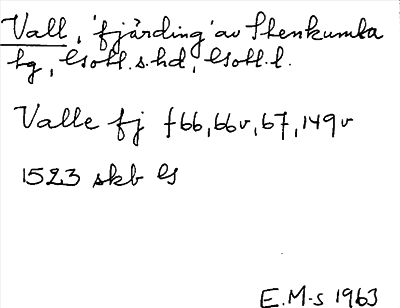 Vall, 'fjärding' av Stenkumla
hg, Gotl.s.hd, Gotl.l.
Valle fj f 66, 66v, 67, 149v
1523 skb G
E.M-s 1963